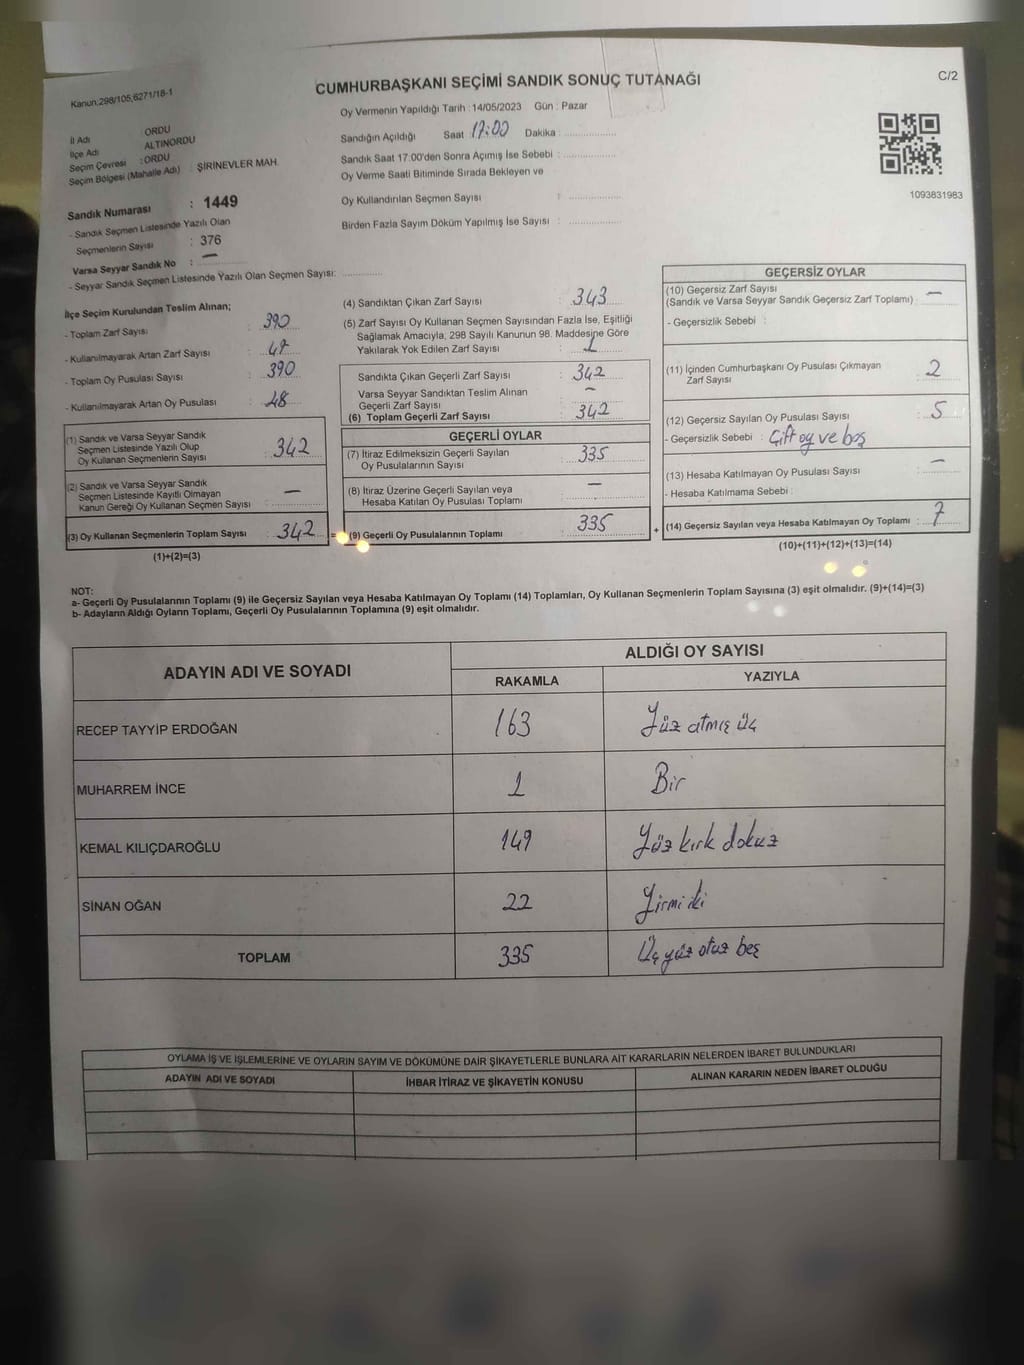 C/2
CUMHURBAŞKANI SEÇİMİ SANDIK SONUÇ TUTANAĞI
Kanun;298/105,6271/18-1
Oy Vermenin Yapıldığı Tarih :14/05/2023 Gün : Pazar
İl Adı ORDU
İlçe Adı ALTINORDU
Seçim Çevresi :ORDU
Seçim Bölgesi (Mahalle Adı) : ŞİRİNEVLER MAH.
Sandığın Açıldığı Saat 17:00 Dakika :
Sandık Saat 17:00'den Sonra Açımış İse Sebebi :
Oy Verme Saati Bitiminde Sırada Bekleyen ve
Oy Kullandırılan Seçmen Sayısı :
Birden Fazla Sayım Döküm Yapılmış İse Sayısı :
1093831983
Sandık Numarası : 1449
- Sandık Seçmen Listesinde Yazılı Olan
Seçmenlerin Sayısı : 376
Varsa Seyyar Sandık No : —
- Seyyar Sandık Seçmen Listesinde Yazılı Olan Seçmen Sayısı:
İlçe Seçim Kurulundan Teslim Alınan;
- Toplam Zarf Sayısı : 390
- Kullanılmayarak Artan Zarf Sayısı : 47
- Toplam Oy Pusulası Sayısı : 390
- Kullanılmayarak Artan Oy Pusulası : 48
(1) Sandık ve Varsa Seyyar Sandık
Seçmen Listesinde Yazılı Olup
Oy Kullanan Seçmenlerin Sayısı : 342
(2) Sandık ve Varsa Seyyar Sandık
Seçmen Listesinde Kayıtlı Olmayan
Kanun Gereği Oy Kullanan Seçmen Sayısı : —
(3) Oy Kullanan Seçmenlerin Toplam Sayısı : 342 =
(1)+(2)=(3)
(4) Sandıktan Çıkan Zarf Sayısı : 343
(5) Zarf Sayısı Oy Kullanan Seçmen Sayısından Fazla İse, Eşitliği
Sağlamak Amacıyla, 298 Sayılı Kanunun 98. Maddesine Göre
Yakılarak Yok Edilen Zarf Sayısı : 1
Sandıkta Çıkan Geçerli Zarf Sayısı : 342
Varsa Seyyar Sandıktan Teslim Alınan
Geçerli Zarf Sayısı : —
(6) Toplam Geçerli Zarf Sayısı : 342
GEÇERLİ OYLAR
(7) İtiraz Edilmeksizin Geçerli Sayılan
Oy Pusulalarının Sayısı : 335
(8) İtiraz Üzerine Geçerli Sayılan veya
Hesaba Katılan Oy Pusulası Toplamı : —
(9) Geçerli Oy Pusulalarının Toplamı : 335 +
GEÇERSİZ OYLAR
(10) Geçersiz Zarf Sayısı
(Sandık ve Varsa Seyyar Sandık Geçersiz Zarf Toplamı) : —
- Geçersizlik Sebebi :
(11) İçinden Cumhurbaşkanı Oy Pusulası Çıkmayan
Zarf Sayısı : 2
(12) Geçersiz Sayılan Oy Pusulası Sayısı : 5
- Geçersizlik Sebebi : Çift oy ve boş
(13) Hesaba Katılmayan Oy Pusulası Sayısı : —
- Hesaba Katılmama Sebebi :
(14) Geçersiz Sayılan veya Hesaba Katılmayan Oy Toplamı : 7
(10)+(11)+(12)+(13)=(14)
NOT:
a- Geçerli Oy Pusulalarının Toplamı (9) ile Geçersiz Sayılan veya Hesaba Katılmayan Oy Toplamı (14) Toplamları, Oy Kullanan Seçmenlerin Toplam Sayısına (3) eşit olmalıdır. (9)+(14)=(3)
b- Adayların Aldığı Oyların Toplamı, Geçerli Oy Pusulalarının Toplamına (9) eşit olmalıdır.
ADAYIN ADI VE SOYADI ALDIĞI OY SAYISI
RAKAMLA YAZIYLA
RECEP TAYYİP ERDOĞAN 163 Yüz atmış üç
MUHARREM İNCE 1 Bir
KEMAL KILIÇDAROĞLU 149 Yüz kırk dokuz
SİNAN OĞAN 22 Yirmi iki
TOPLAM 335 Üç yüz otuz beş
OYLAMA İŞ VE İŞLEMLERİNE VE OYLARIN SAYIM VE DÖKÜMÜNE DAİR ŞİKAYETLERLE BUNLARA AİT KARARLARIN NELERDEN İBARET BULUNDUKLARI
ADAYIN ADI VE SOYADI İHBAR İTİRAZ VE ŞİKAYETİN KONUSU ALINAN KARARIN NEDEN İBARET OLDUĞU